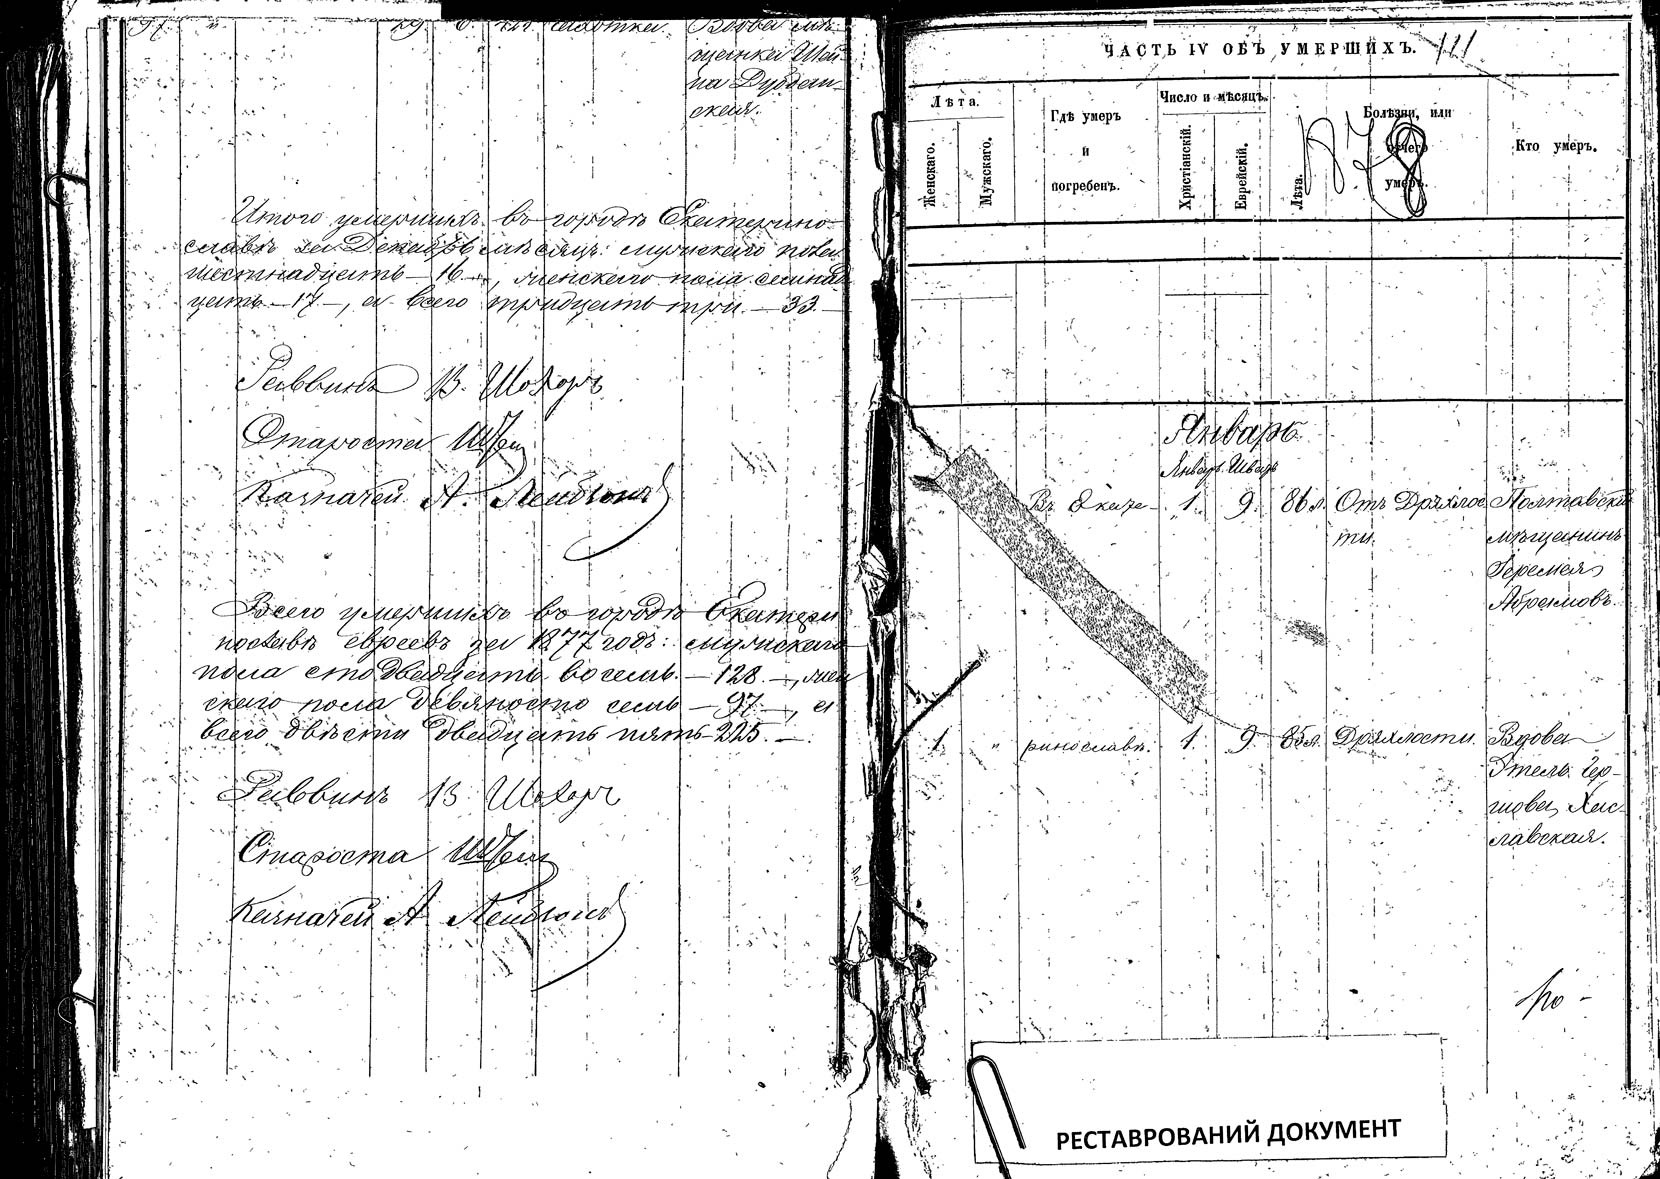 97. " 29. 6. чахотка. Вдова мѣ-
щанка Шей-
на Дубван-
ская.
Итого умершихъ въ городѣ Екатерино-
славѣ за Декабрь мѣсяцъ: мужскаго пола
шестнадцать — 16 —, женскаго пола семнад
цать — 17 —, а всего тридцать три — 33. —
Раввинъ В. Шохоръ
Староста
Казначей А. Лейбзонъ
Всего умершихъ въ городѣ Екатери
нославѣ евреевъ за 1877 годъ: мужскаго
пола сто двадцать восемь. — 128. —, жен
скаго пола девяносто семь — 97 —, а
всего двѣсти двадцать пять — 225. —
Раввинъ В. Шохоръ
Староста
Казначей А. Лейбзонъ
ЧАСТЬ IV ОБЪ УМЕРШИХЪ. 111
Лѣта.
Женскаго.
Мужскаго.
Гдѣ умеръ
и
погребенъ.
Число и мѣсяцъ.
Христіанскій.
Еврейскій.
Лѣта.
Болѣзни, или
отчего
умеръ.
Кто умеръ.
Январь
Январь. Шватъ
Въ Екате- 1. 9. 86 л. Отъ Дряхлос
ти.
Полтавскій
мѣщанинъ
Геремея
Абрамовъ.
1. " ринославѣ. 1. 9. 85 л. Дряхлости.
Вдова
Этель Гер-
шова, Хас-
лавская.
По -
РЕСТАВРОВАНИЙ ДОКУМЕНТ